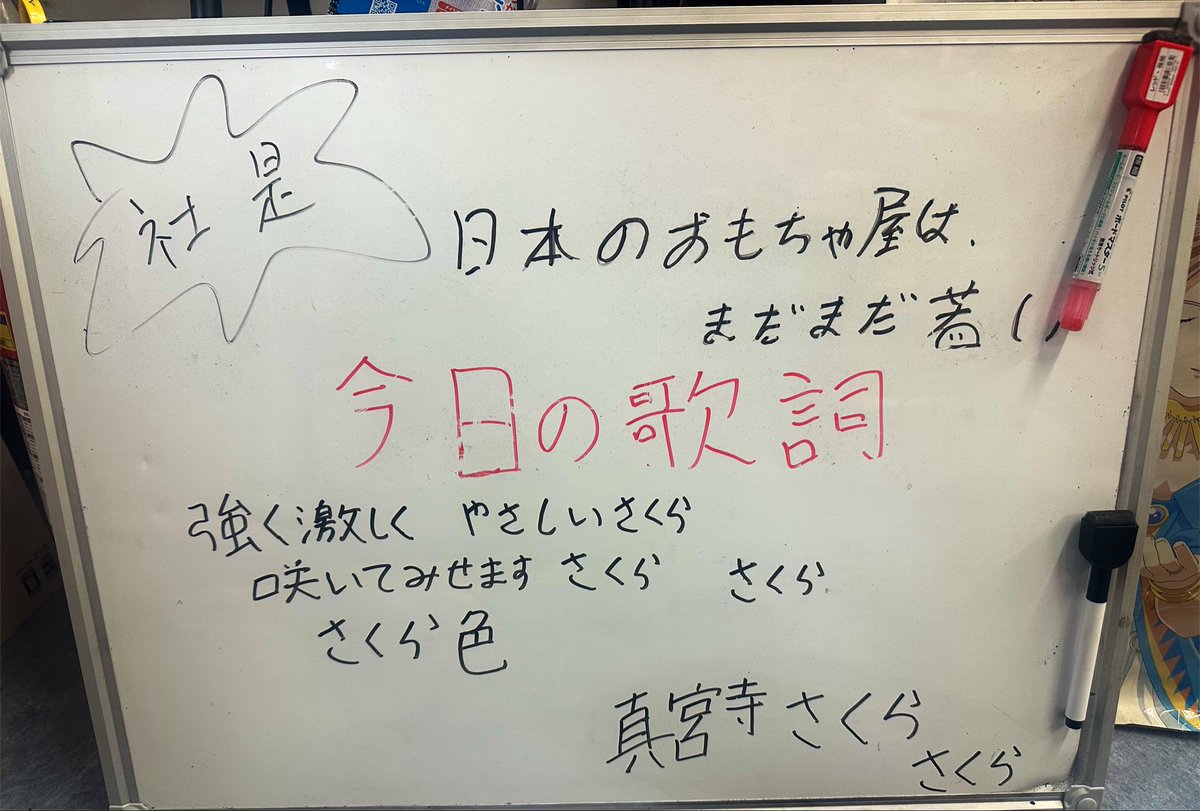 社是
日本のおもちゃ屋は、
まだまだ蒼い
今日の歌詞
強く激しく やさしいさくら
咲いてみせます さくら さくら
さくら色
真宮寺さくら
さくら
PILOT ボードマスターS